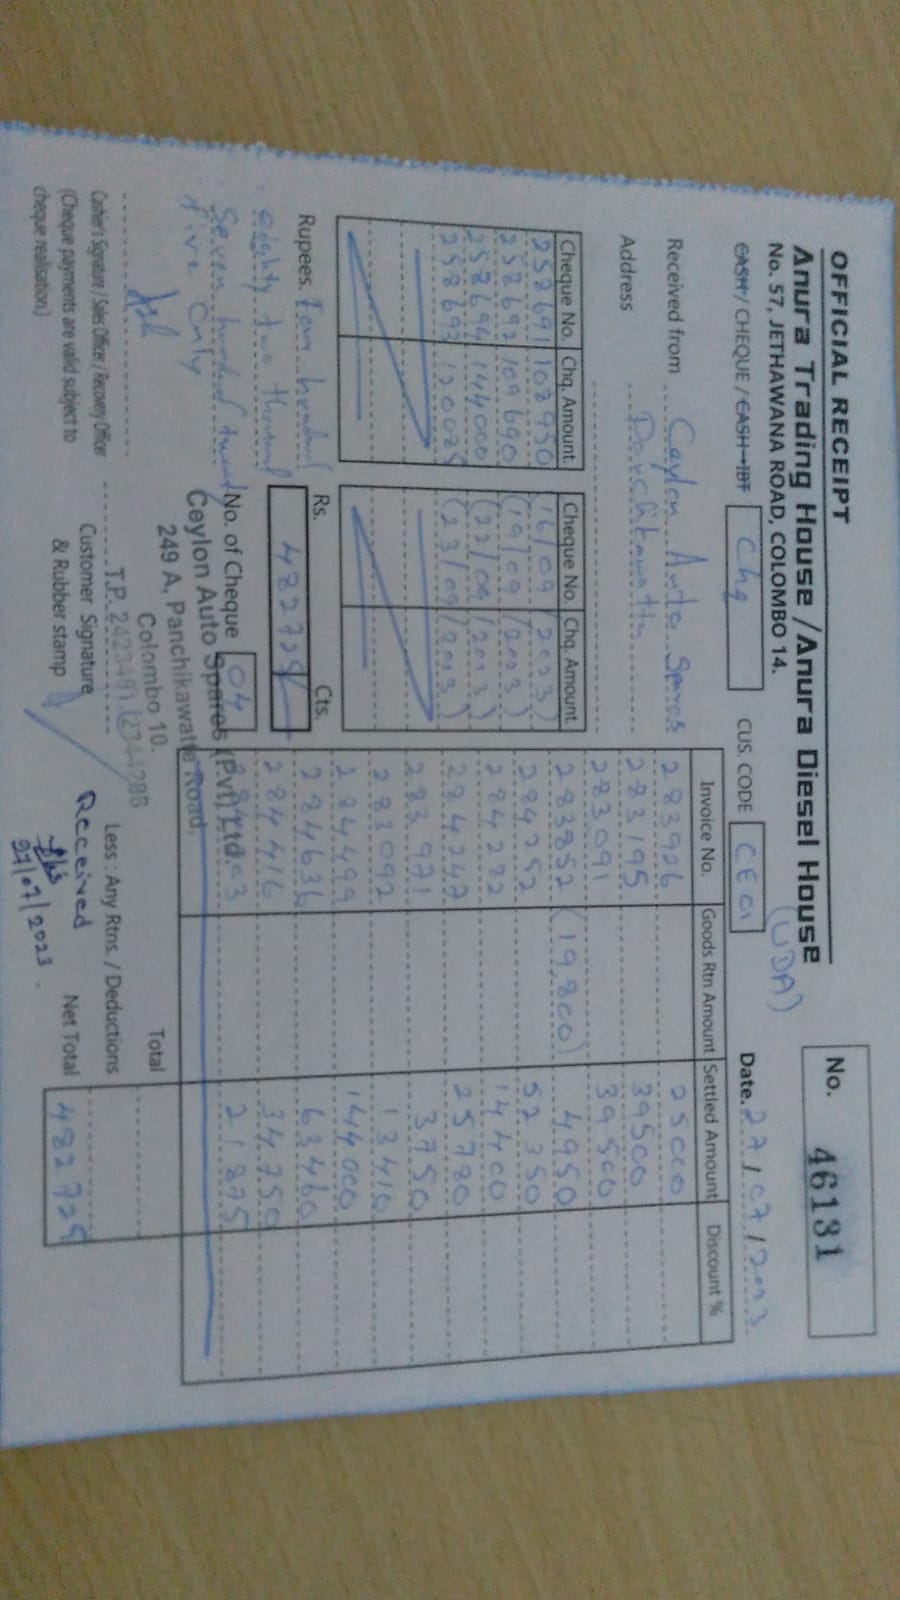 OFFICIAL RECEIPT
No. 46131
Anura Trading House / Anura Diesel House
(UDA)
No. 57, JETHAWANA ROAD, COLOMBO 14.
CASH / CHEQUE / CASH→IBT Chq CUS. CODE CE01 Date. 27/07/2023
Received from Ceylon Auto Spares
Address Panchikawatta
Cheque No. Chq. Amount Cheque No. Chq. Amount
258691 108950 (16/09/2023)
258692 109690 (19/09/2023)
258694 144000 (22/09/2023)
258693 120085 (23/09/2023)
Rupees. Four hundred
eighty two thousand
Seven hundred twenty
five only
Rs. Cts.
482725/
No. of Cheque 04
Invoice No. Goods Rtn Amount Settled Amount Discount %
283926 25000
283195 39500
283091 39500
283852 (19,800) 4950
284252 52350
284282 14400
284247 25780
283971 3750
283092 13410
284499 144000
284636 63460
284416 34750
21875
Total
Less : Any Rtns. / Deductions
Net Total 482725
Ceylon Auto Spares (Pvt) Ltd.
249 A, Panchikawatte Road,
Colombo 10.
T.P. 2423491, 2344288
Cashier's Signature / Sales Officer / Recovery Officer
(Cheque payments are valid subject to
cheque realisation)
Customer Signature
& Rubber stamp
Received
27/07/2023